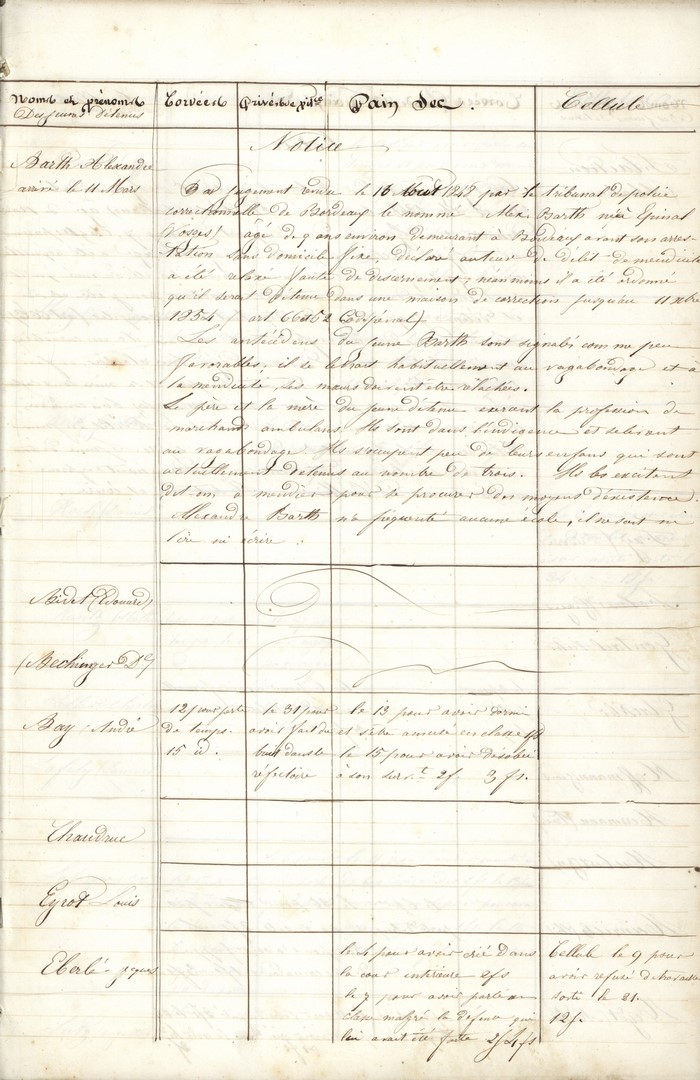 Noms et prénoms
Des jeunes détenus
Corvées
Privés de pit.ce
Pain Sec
Cellule
Notice
Barth Alexandre
arrivé le 11 Mars
Par jugement rendu le 13 Août 1847 par le tribunal de police
correctionnelle de Bordeaux le nommé Alex. Barth né à Epinal
(Vosges) âgé de 9 ans environ demeurant à Bordeaux avant son arres-
tation sans domicile fixe, déclaré auteur de délit de mendicité
a été relaxé faute de discernement; néanmoins il a été ordonné
qu'il serait détenu dans une maison de correction jusqu'au 11 xbre
1854 (art 66 et 52 Code pénal)
Les antécédens du jeune Barth sont signalés comme peu
favorables, il se livrait habituellement au vagabondage et à
la mendicité, ses mœurs doivent être relachées.
Le père et la mère du jeune détenu exercent la profession de
marchands ambulans. Ils sont dans l'indigence et se livrent
au vagabondage Ils s'occupent peu de leurs enfans qui sont
actuellement détenus au nombre de trois. Ils les excitent
dit-on à mendier pour se procurer des moyens d'existence.
Alexandre Barth n'a fréquenté aucune école, il ne sait ni
lire ni écrire.
Bidet (Edouard)
Bechinger D.
Bay André
12 pour perte
de temps.
15 id.
le 31 pour
avoir fait du
bruit dans le
réfectoire
le 13 pour avoir dormi
et s'être amusé en classe 1f
le 15 pour avoir désobéi
à son surv.t 2f. 3 fs.
Chaudruc
Eyrot Louis
Eberlé Jques
le 4 pour avoir crié dans
la cour intérieure 2fs
le 9 pour avoir parlé en
classe malgré la défense qui
lui avait été faite 2f 4fs
Cellule le 9 pour
avoir refusé de travailler
sorti le 21.
12f.